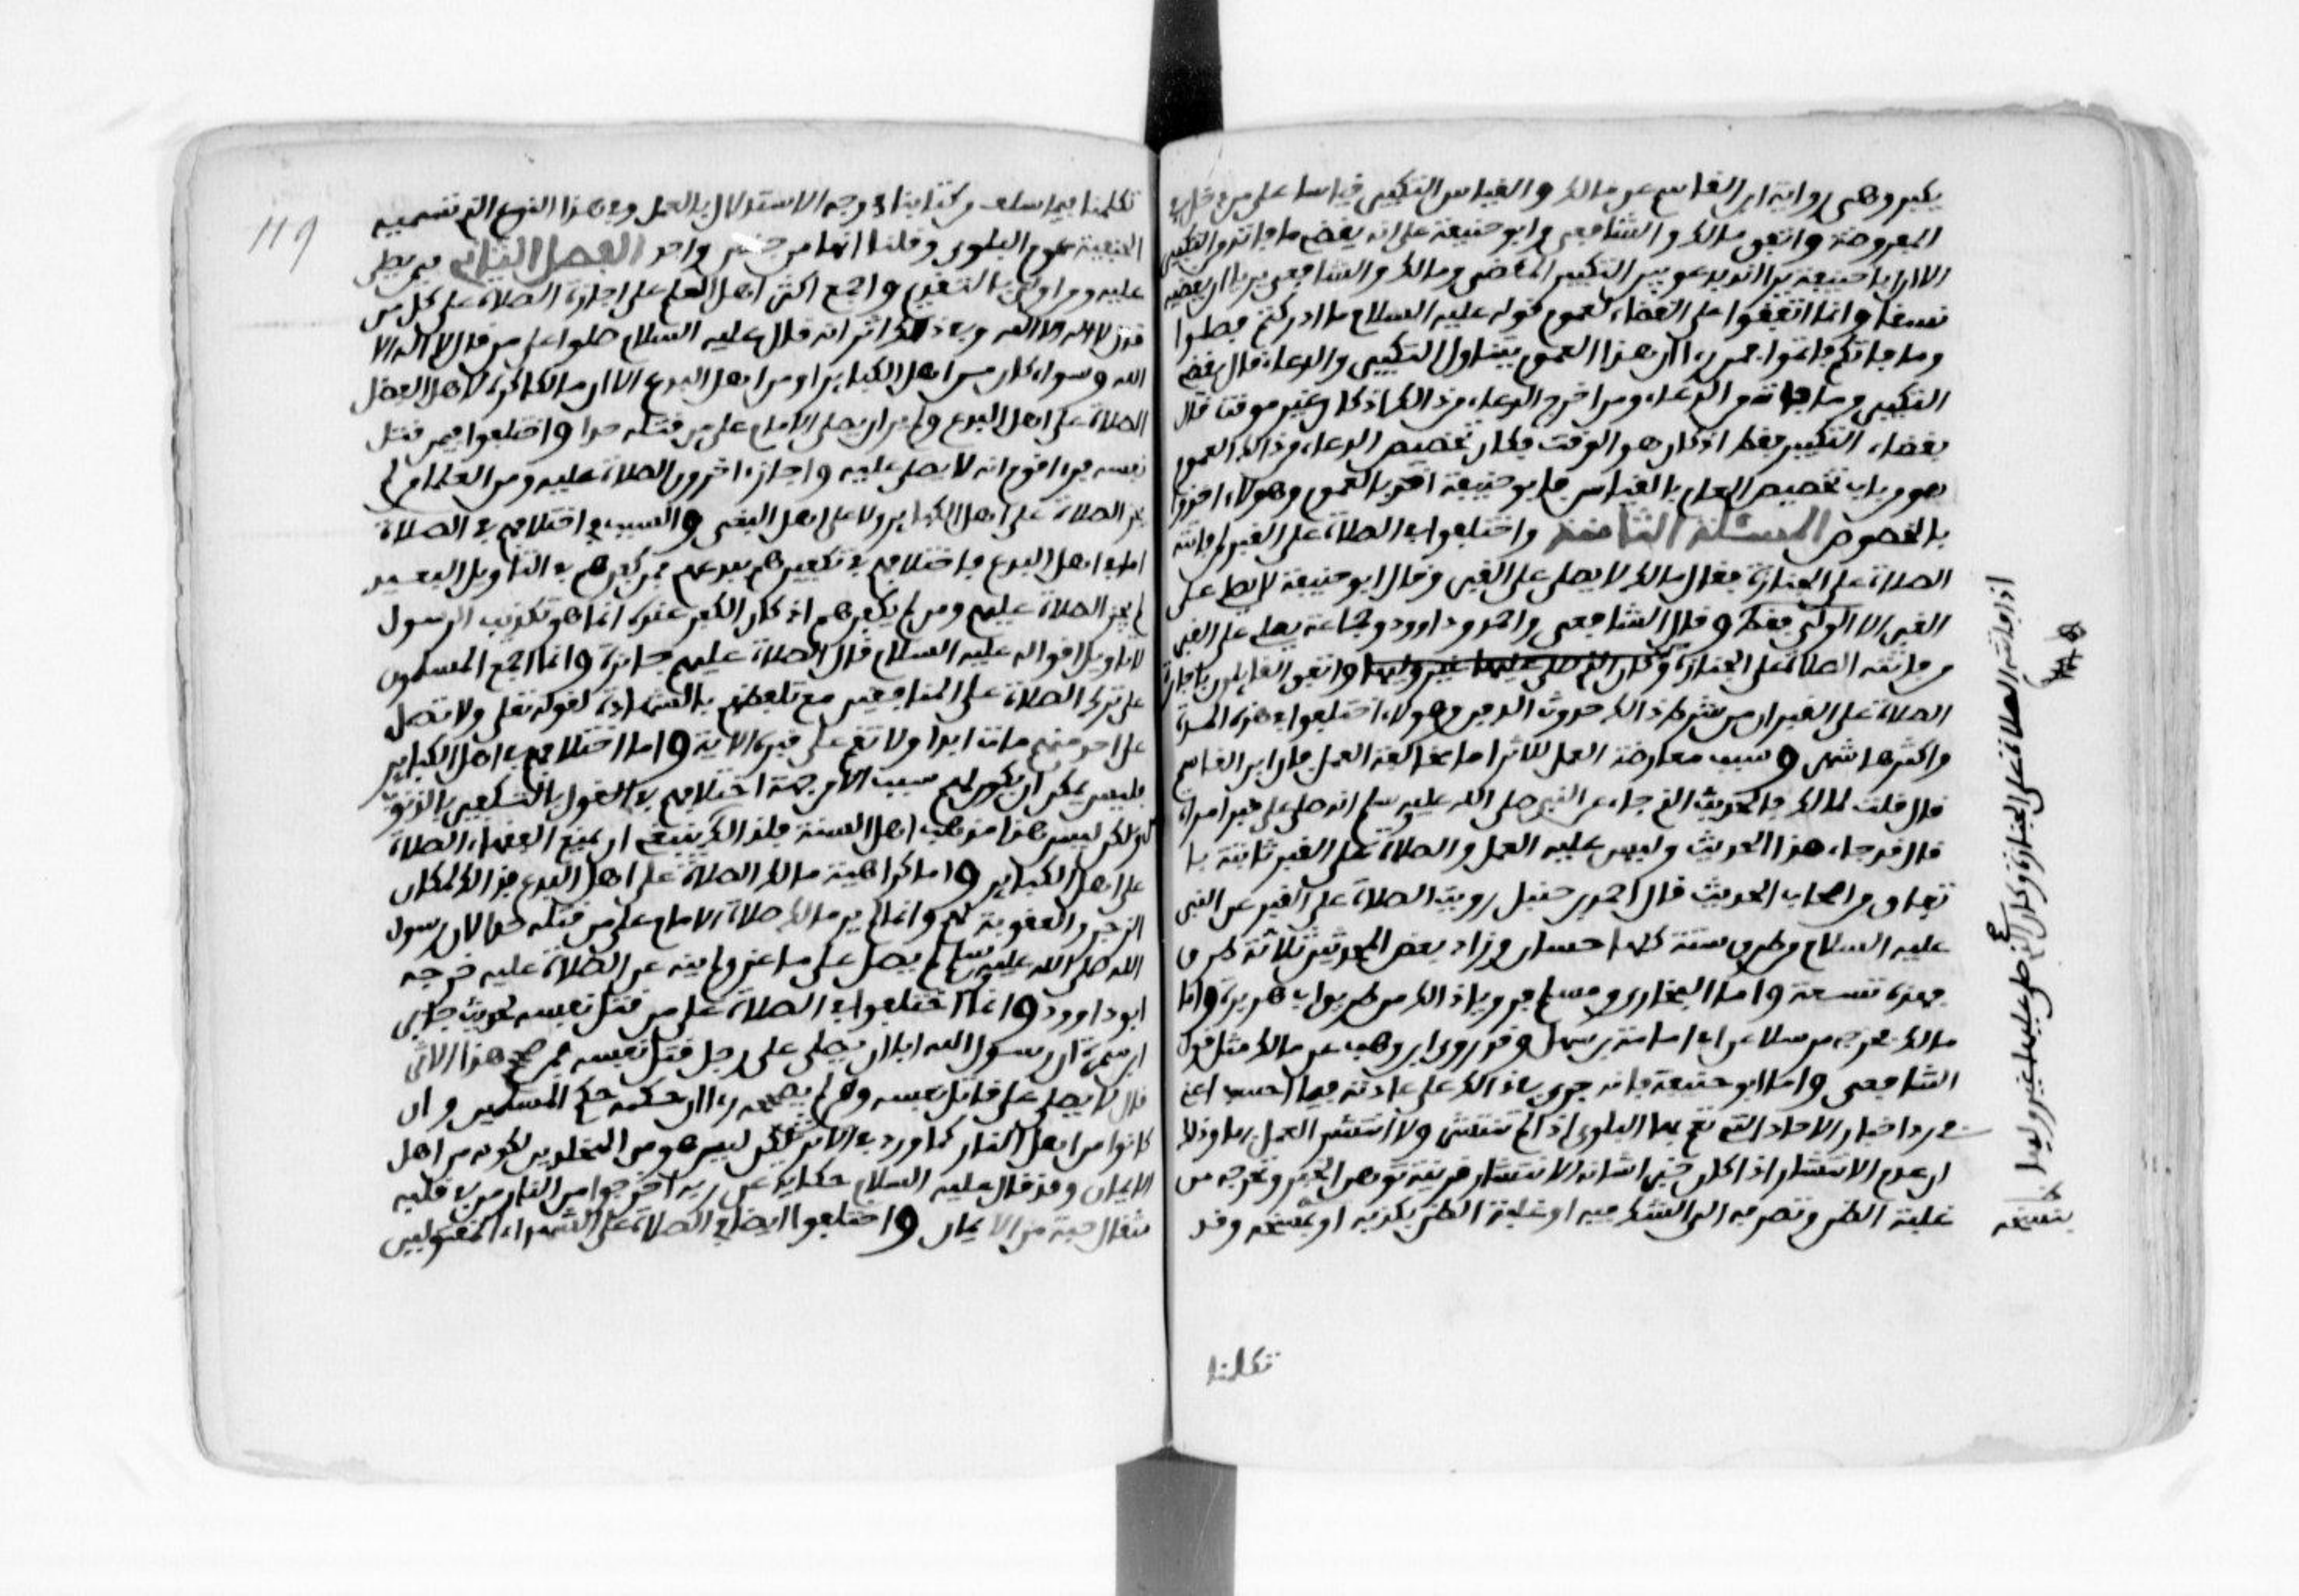 يكبر وهي رواية ابن القاسم عن مالك والقياس التكبير قياسا على من دخل في
المفروضة واتفق مالك والشافعي وابو حنيفة على انه يقضي ما فاته من التكبير
الا ان ابا حنيفة يرى ان يدعو بين التكبير المقضي ومالك والشافعي يريا ان يقضيه
نسقا وانما اتفقوا على القضاء لعموم قوله عليه السلام ما ادركتم فصلوا
وما فاتكم فاتموا فمن رءا ان هذا العموم يتناول التكبير والدعاء قال يقضي
التكبير وما فاته من الدعاء ومن اخرج الدعاء من ذالك اذ كان غير موقت قال
بقضاء التكبير فقط اذ كان هو الموقت فكان تخصيص الدعاء من ذالك العموم
هو من باب تخصيص العام بالقياس فابو حنيفة اخذ بالعموم وهولاء اخذوا
بالخصوص المسئلة الثامنة واختلفوا في الصلاة على القبر لمن فاتته
الصلاة على الجنازة فقال مالك لا يصلى على القبر وقال ابو حنيفة لا يصلي على
القبر الا الولي فقط وقال الشافعي واحمد وداوود وجماعة يصلي على القبر
من فاتته الصلاة على الجنازة وكان الذي صلى عليها غير وليها واتفق القايلون باجازة
الصلاة على القبر ان من شرط ذالك حدوث الدفن وهولاء اختلفوا في هذه المدة
واكثرها شهر وسبب معارضة العمل للاثر اما مخالفة العمل فان ابن القاسم
قال قلت لمالك فالحديث الذي جاء عن النبي صلى الله عليه وسلم انه صلى على قبر امراة
قال قد جاء هذا الحديث وليس عليه العمل والصلاة على القبر ثابتة با
تفاق من اصحاب الحديث قال احمد بن حنبل رويت الصلاة على القبر عن النبي
عليه السلام من طرق ستة كلها حسان وزاد بعض المحدثين ثلاثة طرق
فهذه تسعة واما البخاري ومسلم فرويا ذالك من طريق ابي هريرة واما
مالك فخرجه مرسلا عن ابي امامة بن سهل وقد روى ابن وهب عن مالك مثل قول
الشافعي واما ابو حنيفة فانه جرى في ذالك على عادته فيما احسب اعني
من رد اخبار الاحاد التي تعم بها البلوى اذا لم تنتشر ولا انتشر العمل بها وذلك
ان عدم الانتشار اذا كان خبرا شانه الانتشار قرينة توهن الخبر وتخرجه من
غلبة الظن وتصريه الى الشك فيه او غلبة الظن بكذبه او بنسخه وقد
تكلمنا
اذا فاتته الصلاة على الجنازة وكان الذي صلى عليها غير وليها
بنسخه
119
تكلمنا فيما سلف من كتابنا في وجه الاستدلال بالعمل وفي هذا النوع الذي تسميه
الحنفية عموم البلوى وقلنا انها من جنس واحد الفصل الثاني فيمن يصلى
عليه ومن اولى بالتقديم واجمع اكثر اهل العلم على اجازة الصلاة على كل من
قال لا اله الا الله وفي ذالك اثر انه قال عليه السلام صلوا على من قال لا اله الا
الله وسواء كان من اهل الكباير او من اهل البدع الا ان مالكا كره لاهل الفضل
الصلاة على اهل البدع ولم ير ان يصلي الامام على من قتله حدا واختلفوا فيمن قتل
نفسه فرءا قوم انه لا يصلى عليه واجازه اخرون الصلاة عليه ومن العلماء من لم
يجز الصلاة على اهل الكباير ولا على اهل البغي والسبب في اختلافهم في الصلاة
اما في اهل البدع فاختلافهم في تكفيرهم ببدعهم فمن كفرهم في التاويل البعيد
لم يجز الصلاة عليهم ومن لم يكفرهم اذ كان الكفر عنده انما هو تكذيب الرسول
لا تاويل اقواله عليه السلام قال الصلاة عليهم جائزة وانما اجمع المسلمون
على ترك الصلاة على المنافقين مع تلفظهم بالشهادة لقوله تعلى ولا تصل
على احد منهم مات ابدا ولا تقم على قبره الاية واما اختلافهم في اهل الكباير
فليس يمكن ان يكون لهم سبب الا من جهة اختلافهم في القول بالتكفير بالذنو
ب ولكن ليس هذا مذهب اهل السنة فلذالك ينبغي ان يمنع الفقهاء الصلاة
على اهل الكباير واما كراهية مالك الصلاة على اهل البدع فذالك لمكان
الزجر والعقوبة لهم وانما لم ير مالك صلاة الامام على من قتله حدا لان رسول
الله صلى الله عليه وسلم لم يصل على ماعز ولم ينه عن الصلاة عليه خرجه
ابو داوود وانما اختلفوا في الصلاة على من قتل نفسه لحديث جابر
ابن سمرة ان رسول الله ابا ان يصلي على رجل قتل نفسه فمن صحح هذا الاثر
قال لا يصلى على قاتل نفسه ومن لم يصححه رءا ان حكمه حكم المسلمين وان
كانوا من اهل النار كما ورد في الاثر لكن ليس هو من المخلدين لكونه من اهل
الايمان وقد قال عليه السلام حكاية عن ربه اخرجوا من النار من في قلبه
مثقال حبة من الايمان واختلفوا ايضا في الصلاة على الشهداء المقتولين